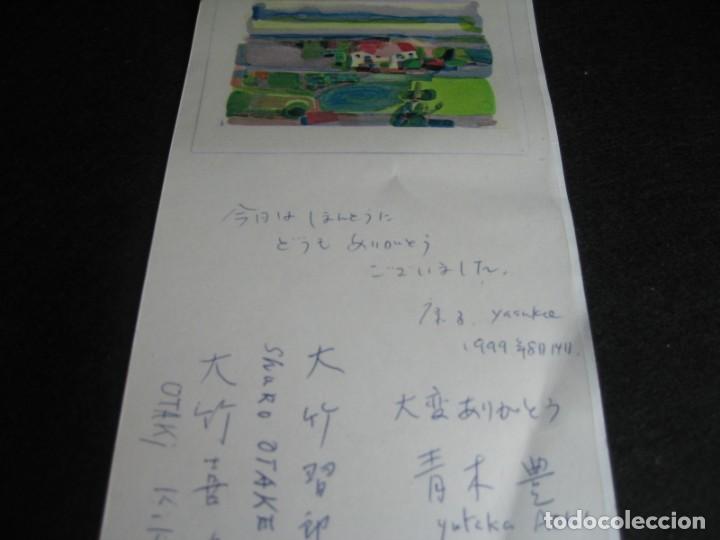 今日は ほんとうに
どうも ありがとう
ございました。
yasukce
1999年8月14日.
大変ありがとう
青木 豊
yutaka
大竹習郎
ShuRO OTAKE
大竹
OTAKi Kik
todocoleccion